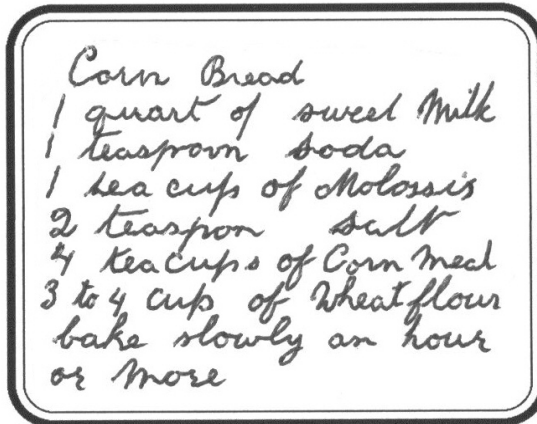 Corn Bread
1 quart of sweet Milk
1 teaspoon soda
1 tea cups of Molossis
2 teaspon salt
4 teacups of Corn Meal
3 to 4 cup of Wheat flour
bake slowly an hour
or More